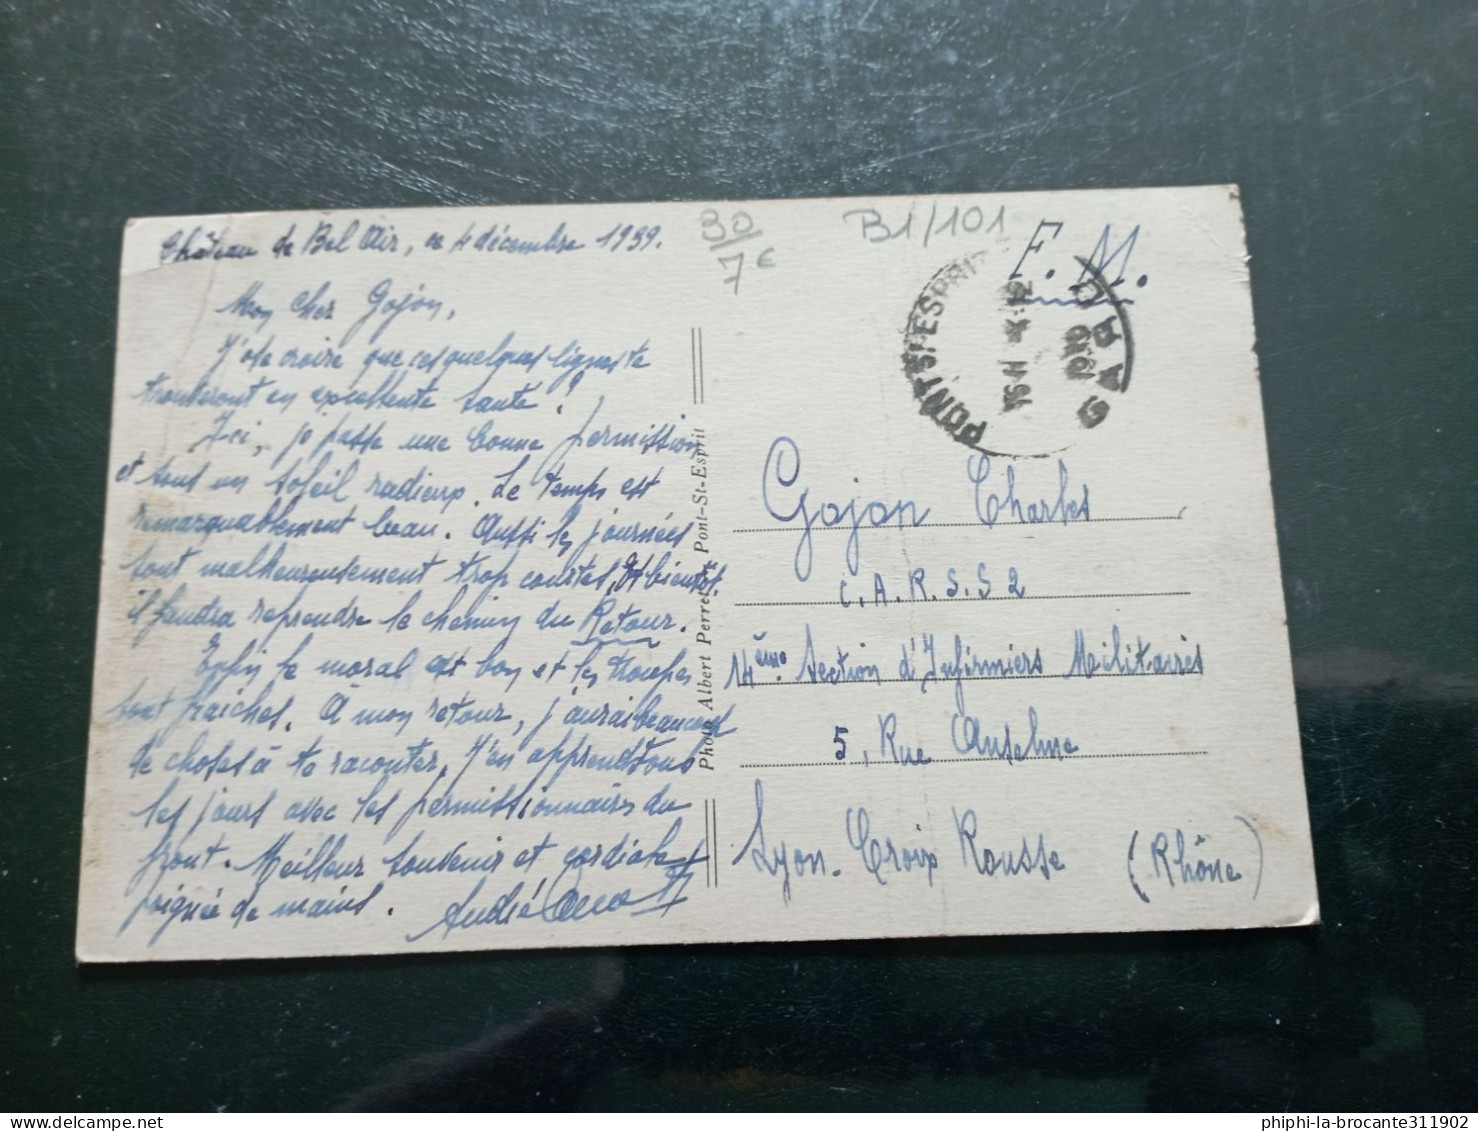 Château de Bel Air, ce 4 décembre 1939.
Mon Cher Gojon,
J'ose croire que ces quelques lignes te
trouveront en excellente santé!
Ici, je passe une bonne permission
et sous un soleil radieux. Le temps est
remarquablement beau. Aussi les journées
sont malheureusement trop courtes. Et bientôt
il faudra reprendre le chemin du Retour.
Enfin le moral est bon et les troupes
sont fraîches. À mon retour, j'aurai beaucoup
de choses à te raconter. J'en apprends tous
les jours avec les permissionnaires du
front. Meilleur souvenir et cordiale
poignée de mains. André
Photo Albert Perret Pont-St-Esprit
30/7 €
B1/101
F. M.
PONT-ST-ESPRIT
GARD
Gojon Charles
C.A.R.S.S 2
14ème Section d'Infirmiers Militaires
5, Rue Anselme
Lyon. Croix Rousse (Rhône)
phiphi-la-brocante311902